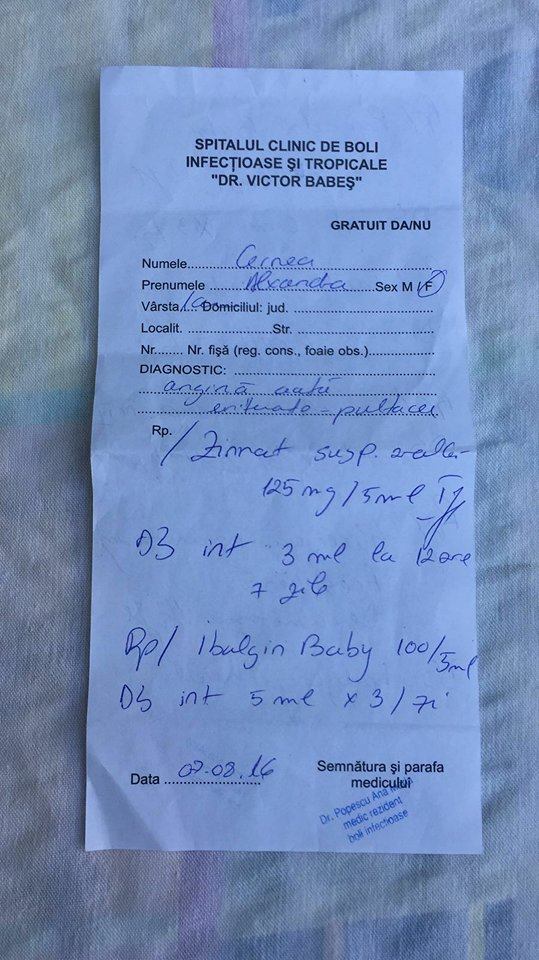 SPITALUL CLINIC DE BOLI
INFECȚIOASE ȘI TROPICALE
"DR. VICTOR BABEȘ"
GRATUIT DA/NU
Numele Cernea
Prenumele Alexandra Sex M / F
Vârsta 1a Domiciliul: jud.
Localit. Str.
Nr. Nr. fișă (reg. cons., foaie obs.)
DIAGNOSTIC:
angină acută
eritemato-pultacee
Rp.
/ Zinnat susp. orală
125 mg / 5 ml
DS int 3 ml la 12 ore
7 zile
Rp/ Ibalgin Baby 100/5ml
DS int 5 ml x 3 / zi
Data 07.08.16 Semnătura și parafa
medicului
Dr. Popescu Ana
medic rezident
boli infectioase